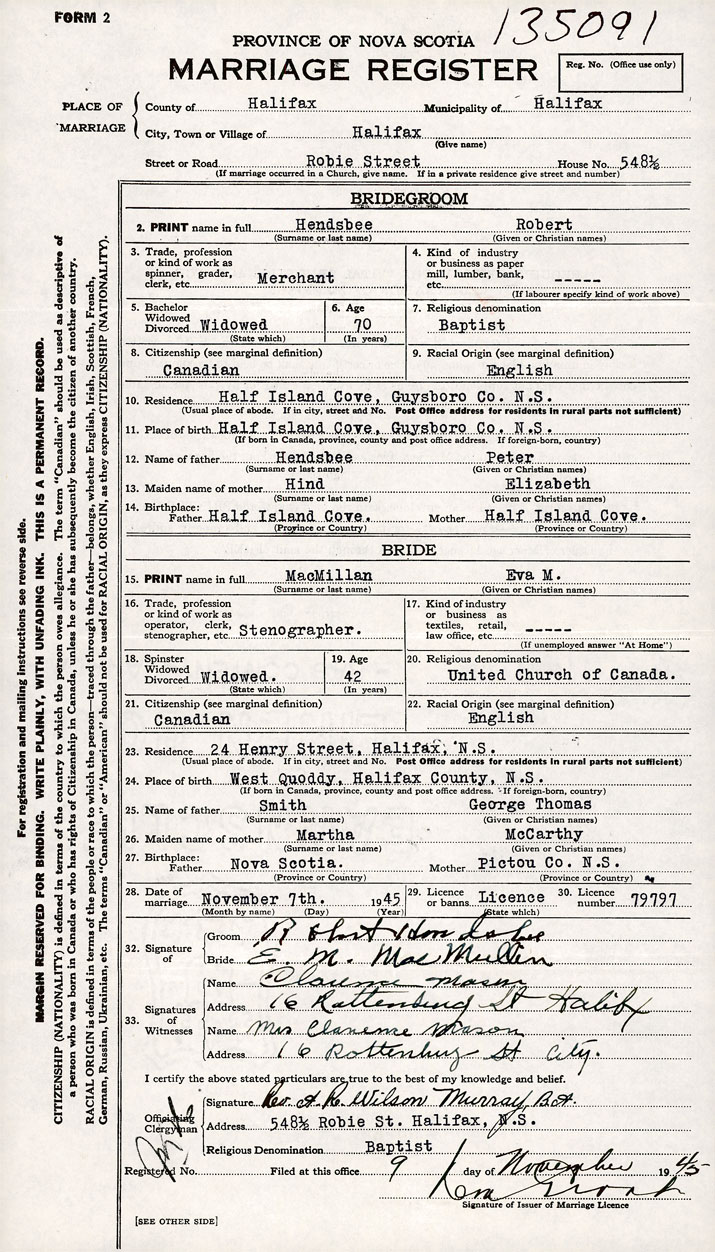 FORM 2
135091
PROVINCE OF NOVA SCOTIA
MARRIAGE REGISTER
Reg. No. (Office use only)
PLACE OF MARRIAGE
County of Halifax Municipality of Halifax
City, Town or Village of Halifax
(Give name)
Street or Road Robie Street House No. 548½
(If marriage occurred in a Church, give name. If in a private residence give street and number)
BRIDEGROOM
2. PRINT name in full Hendsbee Robert
(Surname or last name) (Given or Christian names)
3. Trade, profession or kind of work as spinner, grader, clerk, etc. Merchant
4. Kind of industry or business as paper mill, lumber, bank, etc. -----
(If labourer specify kind of work above)
5. Bachelor Widowed Divorced Widowed
(State which)
6. Age 70
(In years)
7. Religious denomination
Baptist
8. Citizenship (see marginal definition)
Canadian
9. Racial Origin (see marginal definition)
English
10. Residence Half Island Cove, Guysboro Co. N.S.
(Usual place of abode. If in city, street and No. Post Office address for residents in rural parts not sufficient)
11. Place of birth Half Island Cove, Guysboro Co. N.S.
(If born in Canada, province, county and post office address. If foreign-born, country)
12. Name of father Hendsbee Peter
(Surname or last name) (Given or Christian names)
13. Maiden name of mother Hind Elizabeth
(Surname or last name) (Given or Christian names)
14. Birthplace:
Father Half Island Cove. Mother Half Island Cove.
(Province or Country) (Province or Country)
BRIDE
15. PRINT name in full MacMillan Eva M.
(Surname or last name) (Given or Christian names)
16. Trade, profession or kind of work as operator, clerk, stenographer, etc. Stenographer.
17. Kind of industry or business as textiles, retail, law office, etc. -----
(If unemployed answer "At Home")
18. Spinster Widowed Divorced Widowed.
(State which)
19. Age 42
(In years)
20. Religious denomination
United Church of Canada.
21. Citizenship (see marginal definition)
Canadian
22. Racial Origin (see marginal definition)
English
23. Residence 24 Henry Street, Halifax, N.S.
(Usual place of abode. If in city, street and No. Post Office address for residents in rural parts not sufficient)
24. Place of birth West Quoddy, Halifax County, N.S.
(If born in Canada, province, county and post office address. If foreign-born, country)
25. Name of father Smith George Thomas
(Surname or last name) (Given or Christian names)
26. Maiden name of mother Martha McCarthy
(Surname or last name) (Given or Christian names)
27. Birthplace:
Father Nova Scotia. Mother Pictou Co. N.S.
(Province or Country) (Province or Country)
28. Date of marriage November 7th. 1945
(Month by name) (Day) (Year)
29. Licence or banns Licence
(State which)
30. Licence number 79797
32. Signature of
Groom Robert Hendsbee
Bride E. M. MacMillan
33. Signatures of Witnesses
Name Clarence Mason
Address 16 Rottenburg St Halifx
Name Mrs Clarence Mason
Address 16 Rottenburg St City.
I certify the above stated particulars are true to the best of my knowledge and belief.
Officiating Clergyman
Signature Rev. A. R. Wilson Murray, B.A.
Address 548½ Robie St. Halifax, N.S.
Religious Denomination Baptist
Registered No. Filed at this office 9 day of November 1945
Signature of Issuer of Marriage Licence
[SEE OTHER SIDE]
For registration and mailing instructions see reverse side.
MARGIN RESERVED FOR BINDING. WRITE PLAINLY, WITH UNFADING INK. THIS IS A PERMANENT RECORD.
CITIZENSHIP (NATIONALITY) is defined in terms of the country to which the person owes allegiance. The term "Canadian" should be used as descriptive of
a person who was born in Canada or who has rights of Citizenship in Canada, unless he or she has subsequently become the citizen of another country.
RACIAL ORIGIN is defined in terms of the people or race to which the person—traced through the father—belongs, whether English, Irish, Scottish, French,
German, Russian, Ukrainian, etc. The terms "Canadian" or "American" should not be used for RACIAL ORIGIN, as they express CITIZENSHIP (NATIONALITY).